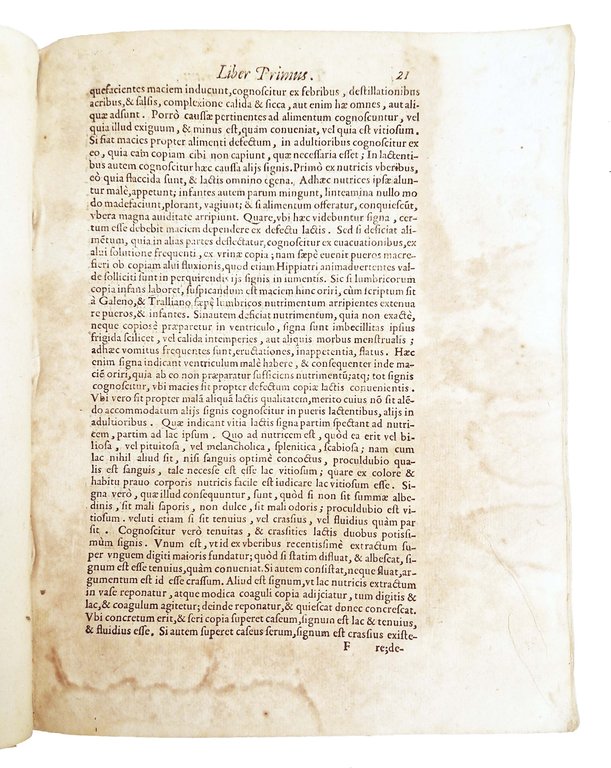 Liber Primus. 21
quefacientes maciem inducunt,cognoscitur ex febribus, destillationibus
acribus,& salsis, complexione calida & sicca, aut enim hæ omnes, aut ali-
quæ adsunt. Porrò caussæ pertinentes ad alimentum cognoscuntur, vel
quia illud exiguum, & minus est,quàm conueniat, vel quia est vitiosum.
Si fiat macies propter alimenti defectum, in adultioribus cognoscitur ex
eo, quia eam copiam cibi non capiunt, quæ necessaria esset; In lactenti-
bus autem cognoscitur hæc caussa alijs signis.Primò ex nutricis vberibus,
eò quia flaccida sunt, & lactis omnino egena. Adhæc nutrices ipsæ alun-
tur malè,appetunt; infantes autem parum mingunt, linteamina nullo mo
do madefaciunt,plorant, vagiunt; & si alimentum offeratur, conquiescūt,
vbera magna auiditate arripiunt. Quare,vbi hæc videbuntur signa, cer-
tum esse debebit maciem dependere ex defectu lactis. Sed si desiciat ali-
mētum, quia in alias partes deflectatur,cognoscitur ex euacuationibus,ex
alui solutione frequenti, ex vrinæ copia; nam sæpè euenit pueros macre-
fieri ob copiam alui fluxionis, quod etiam Hippiatri animaduertentes val-
de solliciti sunt in perquirendis ijs signis in iumentis. Sic si lumbricorum
copia infans laboret, suspicandum est maciem hinc oriri, cùm scriptum sit
à Galeno,& Tralliano sæpè lumbricos nutrimentum arripientes extenua
re pueros,& infantes. Sin autem desiciat nutrimentum, quia non exactè,
neque copiosè præparetur in ventriculo, signa sunt imbecillitas ipsius
frigida scilicet, vel calida intemperies, aut aliquis morbus menstrualis;
adhæc vomitus frequentes sunt,eructationes, inappetentia, flatus. Hæc
enim signa indicant ventriculum malè habere, & consequenter inde ma-
ciē oriri,quia ab eo non præparatur sufficiens nutrimentū;atq; tot signis
cognoscitur, vbi macies sit propter defectum copiæ lactis conuenientis.
Vbi vero sit propter malā aliquā lactis qualitatem,merito cuius nō sit alē-
do accommodatum alijs signis cognoscitur in pueris lactentibus, alijs in
adultioribus. Quæ indicant vitia lactis signa partim spectant ad nutri-
cem, partim ad lac ipsum. Quo ad nutricem est, quòd ea erit vel bi-
liosa, vel pituitosa, vel melancholica, splenitica, scabiosa; nam cum
lac nihil aliud sit, nisi sanguis optimè concoctus, proculdubio qua-
lis est sanguis, tale necesse est esse lac vitiosum; quare ex colore &
habitu prauo corporis nutricis facile est iudicare lac vitiosum esse. Si-
gna verò, quæ illud consequuntur, sunt, quòd si non sit summæ albe-
dinis, sit mali saporis, non dulce, sit mali odoris; proculdubio est vi-
tiosum. veluti etiam si sit tenuius, vel crassius, vel fluidius quàm par
sit. Cognoscitur verò tenuitas, & crassities lactis duobus potissi-
mùm signis. Vnum est, vt id ex vberibus recentissimè extractum su-
per vnguem digiti maioris fundatur; quòd si statim difluat, & albescat, si-
gnum est esse tenuius,quàm conueniat.Si autem consistat,neque fluat,ar-
gumentum est id esse crassum. Aliud est signum,vt lac nutricis extractum
in vase reponatur, atque modica coaguli copia adijciatur, tum digitis &
lac,& coagulum agitetur; deinde reponatur,& quiescat donec concrescat.
Vbi concretum erit,& seri copia superet caseum,signum est lac & tenuius,
& fluidius esse. Si autem superet caseus serum,signum est crassius existe-
F re;de-